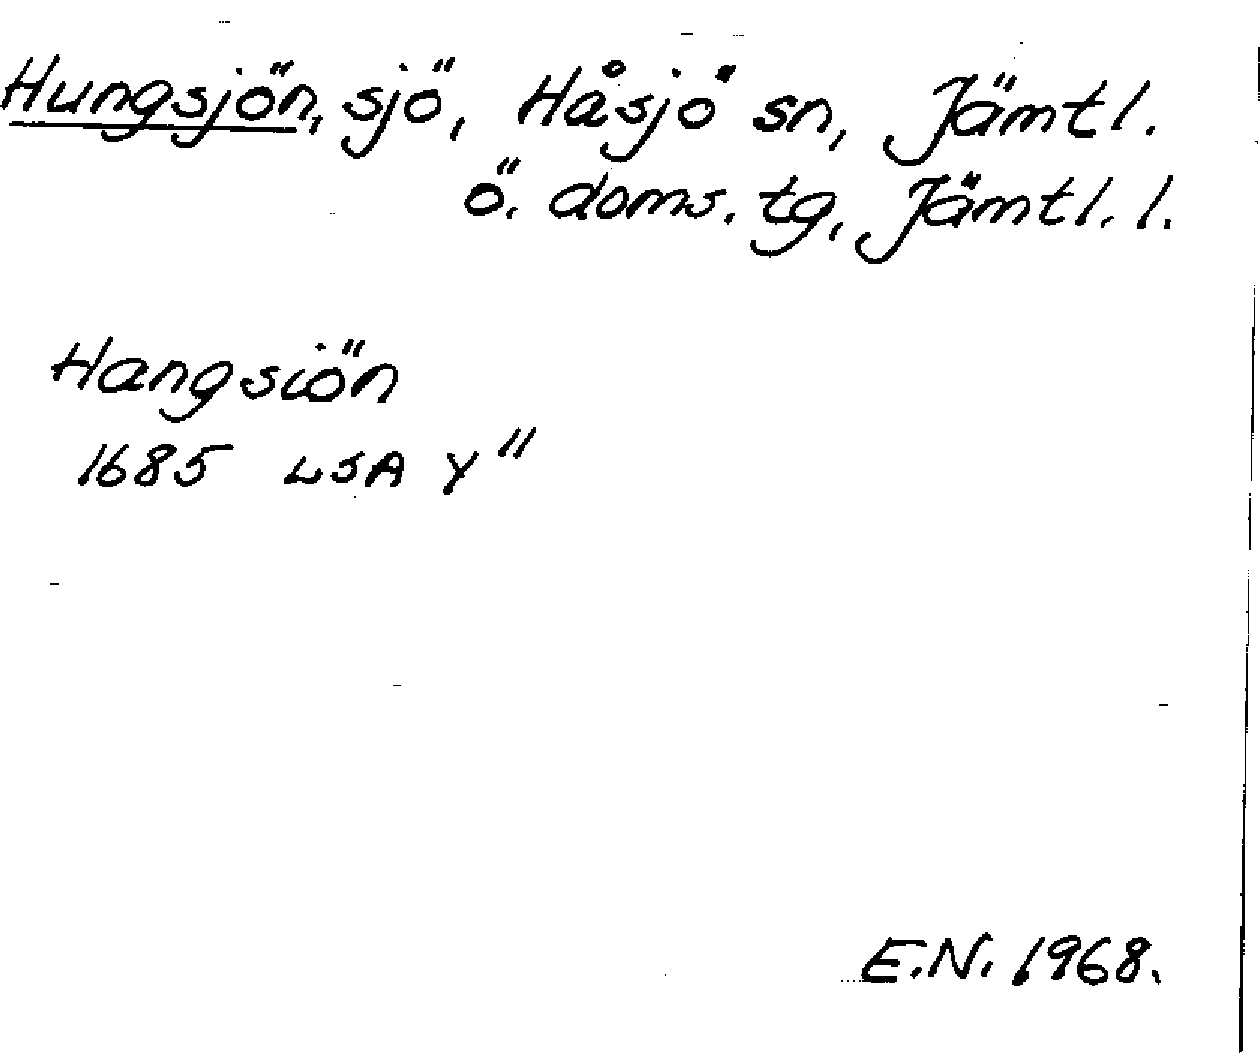 Hungsjön, sjö, Håsjö sn, Jämtl.
ö. doms. tg, Jämtl. l.
Hangsiön
1685 LSA Y"
E.N. 1968.